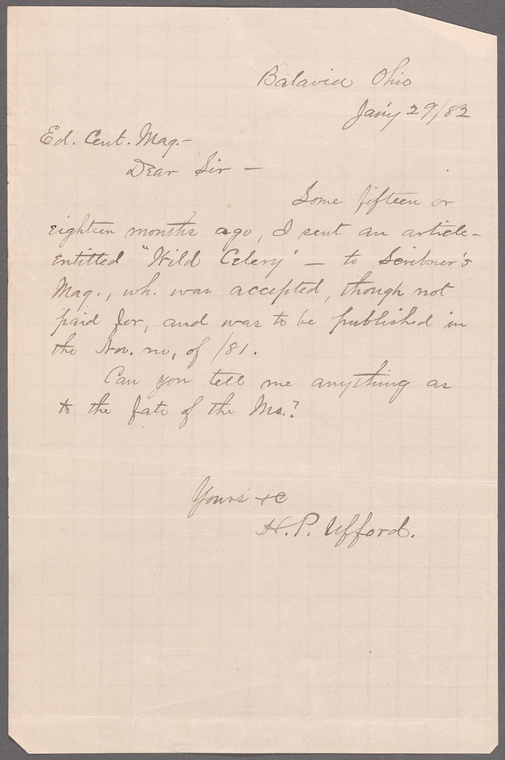 Batavia Ohio
Jan'y 29/82
Ed. Cent. Mag.-
Dear Sir -
Some fifteen or
eighteen months ago, I sent an article-
entitled "Wild Celery" - to Scribner's
Mag., wh. was accepted, though not
paid for, and was to be published in
the Nov. no, of /81.
Can you tell me anything as
to the fate of the Ms.?
Yours &c
H. P. Ufford.